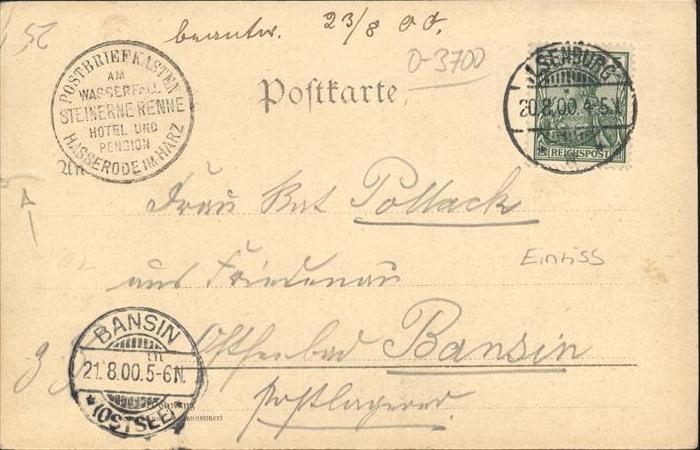 25
beantw. 23/8 00.
0-3700
POSTBRIEFKASTEN
AM
WASSERFALL
STEINERNE RENNE
HOTEL UND
PENSION
HASSERODE IM HARZ
Postkarte
ILSENBURG
20.8.00.4-5N.
REICHSPOST
An
Frau Rat Pollack
aus Friedenau
Einriss
Ostseebad Bansin
Postlagernd.
BANSIN
21.8.00.5-6N.
*(OSTSEE)*